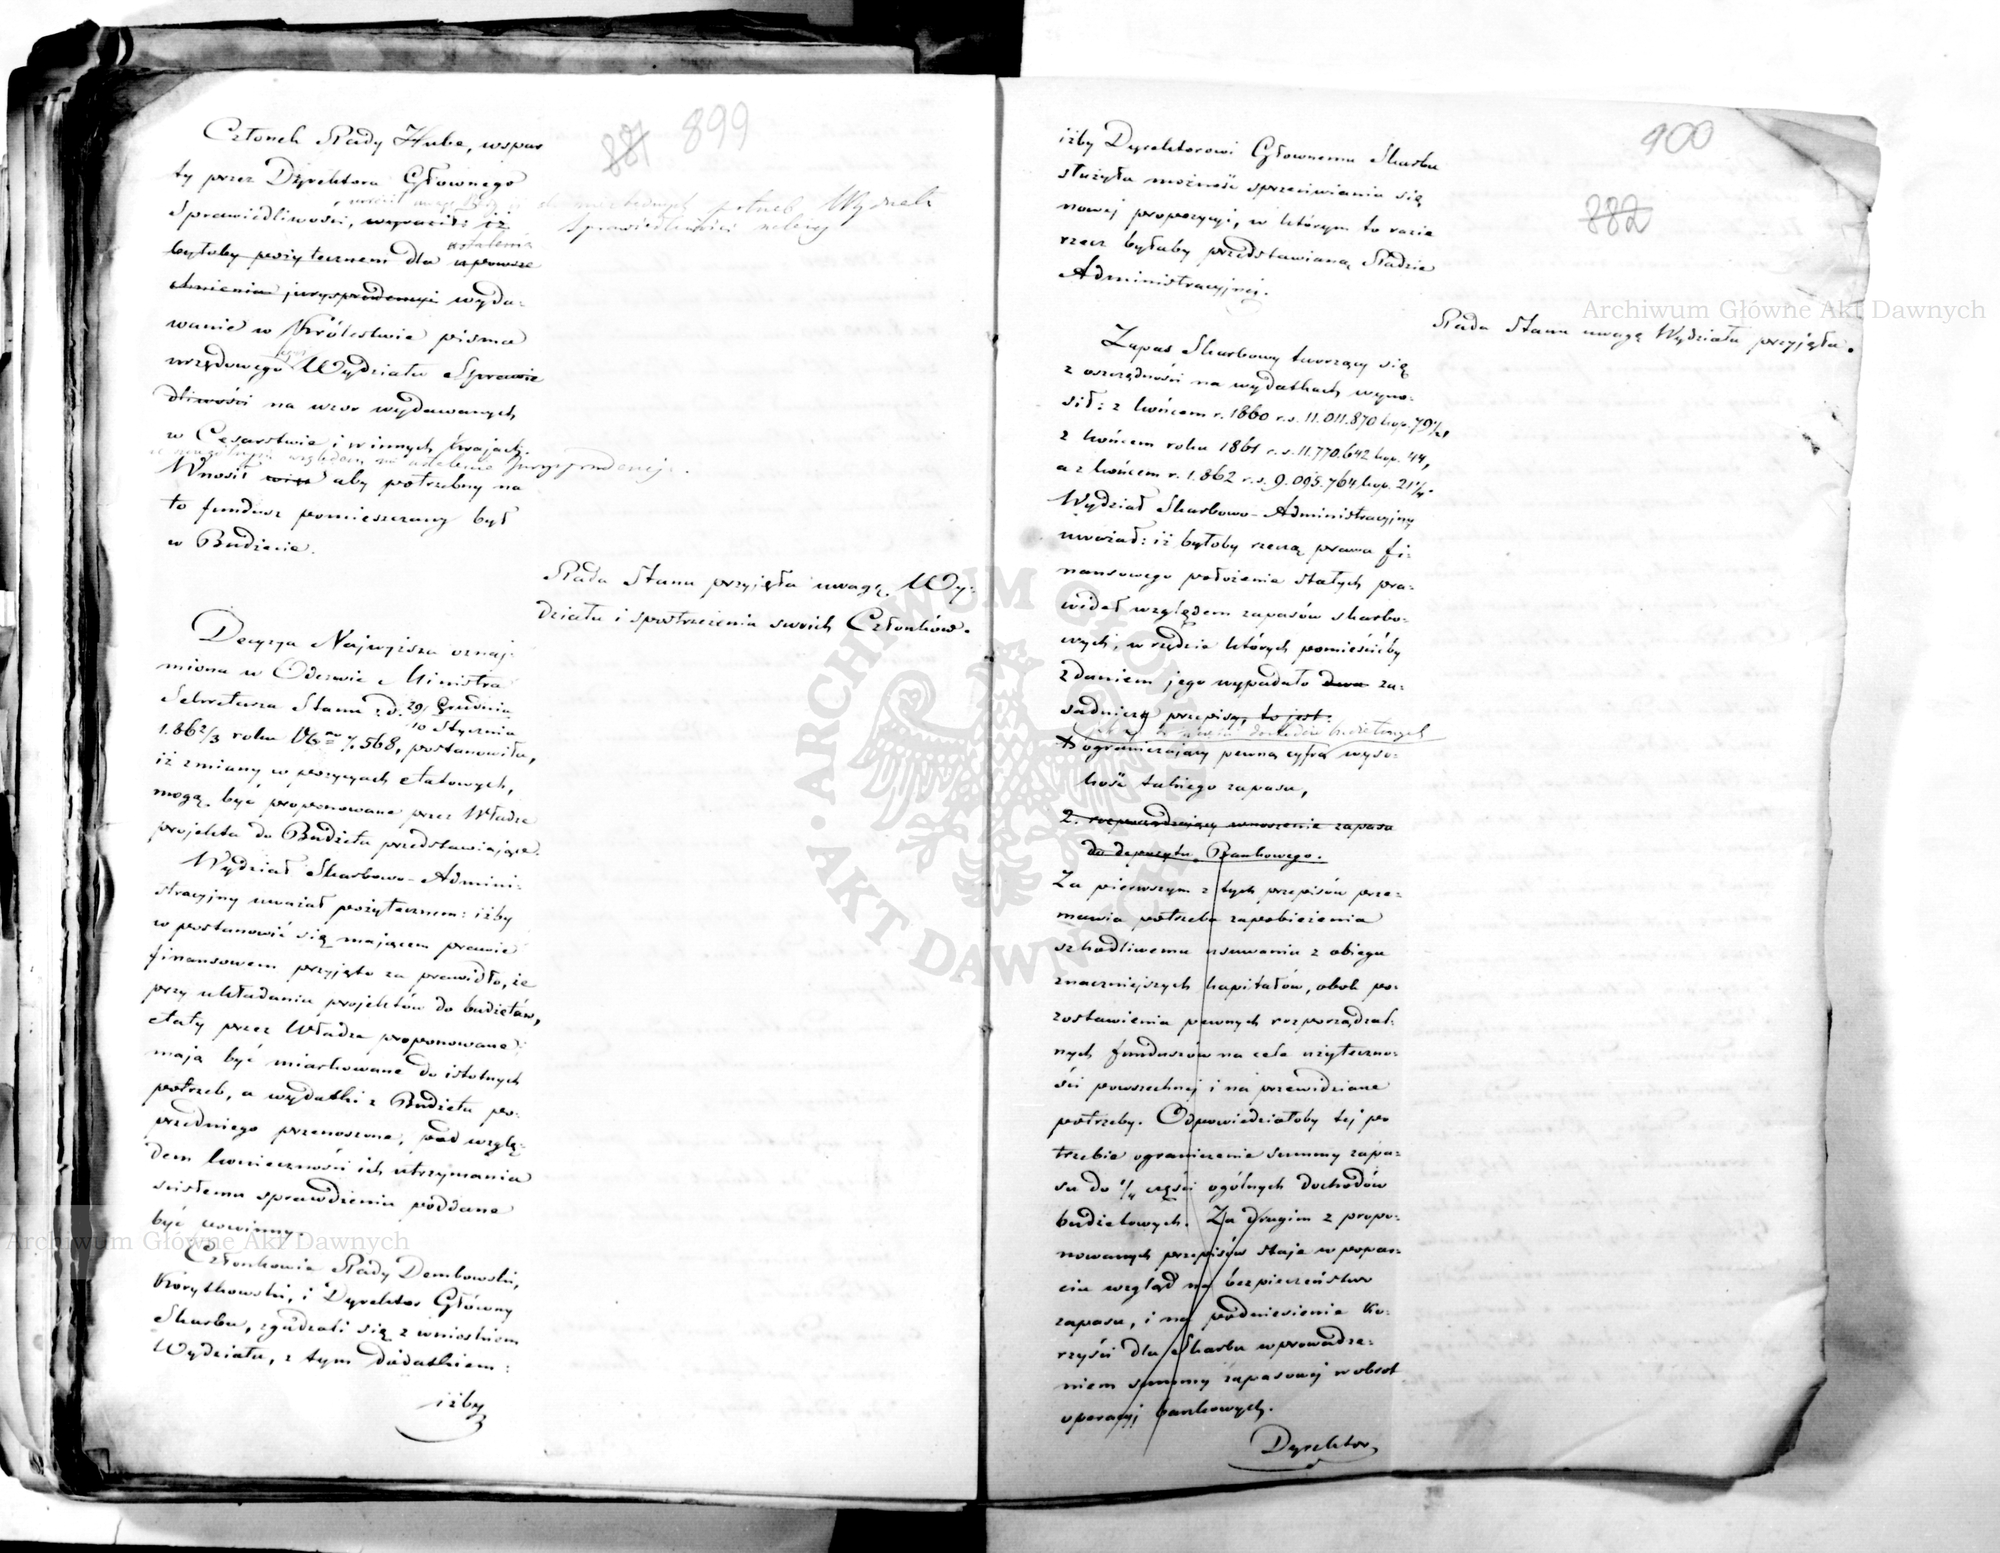 881 899
Członek Rady Hube, wspar
ty przez Dyrektora Głównego
Sprawiedliwości, wyraził: iż
byłoby pożytecznem dla upowsze
chnienia jurysprudencyi wyda-
wanie w Królestwie pisma
urzędowego Wydziału Sprawie
dliwości na wzór wydawanych
w Cesarstwie i w innych krajach.
Wnosił więc aby potrzebny na
to fundusz pomieszczany był
w Budżecie.
Rada Stanu przyjęła uwagę Wy-
działu i spostrzeżenia swoich Członków.
Decyzya Najwyższa oznaj-
miona w Odezwie Ministra
Sekretarza Stanu z d. 29 Grudnia
10 Stycznia
1862/3 roku No 7,568, postanowiła,
iż zmiany w pozycyach etatowych,
mogą być proponowane przez Władze
projekta do Budżetu przedstawiające.
Wydział Skarbowo-Admini-
stracyjny uważał pożytecznem: iżby
w postanowić się mającem prawie
finansowem przyjęto za prawidło, że
przy układaniu projektów do budżetów,
etaty przez Władze proponowane
mają być miarkowane do istotnych
potrzeb, a wydatki z Budżetu po-
przedniego przenoszone, pod wzglę-
dem konieczności ich utrzymania
ścisłemu sprawdzeniu poddane
być powinny.
Członkowie Rady Dembowski,
Korytkowski, i Dyrektor Główny
Skarbu, zgadzali się z wnioskiem
Wydziału, z tym dodatkiem:
iżby
900
882
iżby Dyrektorowi Głównemu Skarbu
służyła możność sprzeciwiania się
nowej propozycyi, w którym to razie
rzecz byłaby przedstawianą Radzie
Administracyjnej.
Rada Stanu uwagę Wydziału przyjęła.
Zapas Skarbowy tworzący się
z oszczędności na wydatkach wyno-
sił: z końcem r. 1860 r.s. 11.011.870 kop. 79½,
z końcem roku 1861 r.s. 11.770.642 kop. 44,
a z końcem r. 1862 r.s. 9.095.764 kop. 21¼.
Wydział Skarbowo-Administracyjny
uważał: iż byłoby rzeczą prawa fi-
nansowego położenie stałych pra-
wideł względem zapasów skarbo-
wych, w rzędzie których pomieścićby
zdaniem jego wypadało dwa za-
sadnicze przepisy, to jest:
1. ograniczający pewną cyfrą wyso-
kość takiego zapasu,
2. rozporządzający wnoszenie zapasu
do depozytu Bankowego.
Za pierwszym z tych przepisów prze-
mawia potrzeba zapobieżenia
szkodliwemu usuwaniu z obiegu
znaczniejszych kapitałów, obok po-
zostawienia pewnych rozporządzal-
nych funduszów na cele użyteczno-
ści powszechnej i na przewidziane
potrzeby. Odpowiedziałoby tej po
trzebie ograniczenie summy zapa-
su do ¼ części ogólnych dochodów
budżetowych. Za drugim z propo-
nowanych przepisów staje w popar-
ciu wzgląd na bezpieczeństwo
zapasu, i na podniesienie ko-
rzyści dla Skarbu wprowadze-
niem summy zapasowej w obrot
operacyj bankowych.
Dyrektor
Archiwum Główne Akt Dawnych
Archiwum Główne Akt Dawnych
ARCHIWUM GŁÓWNE AKT DAWNYCH